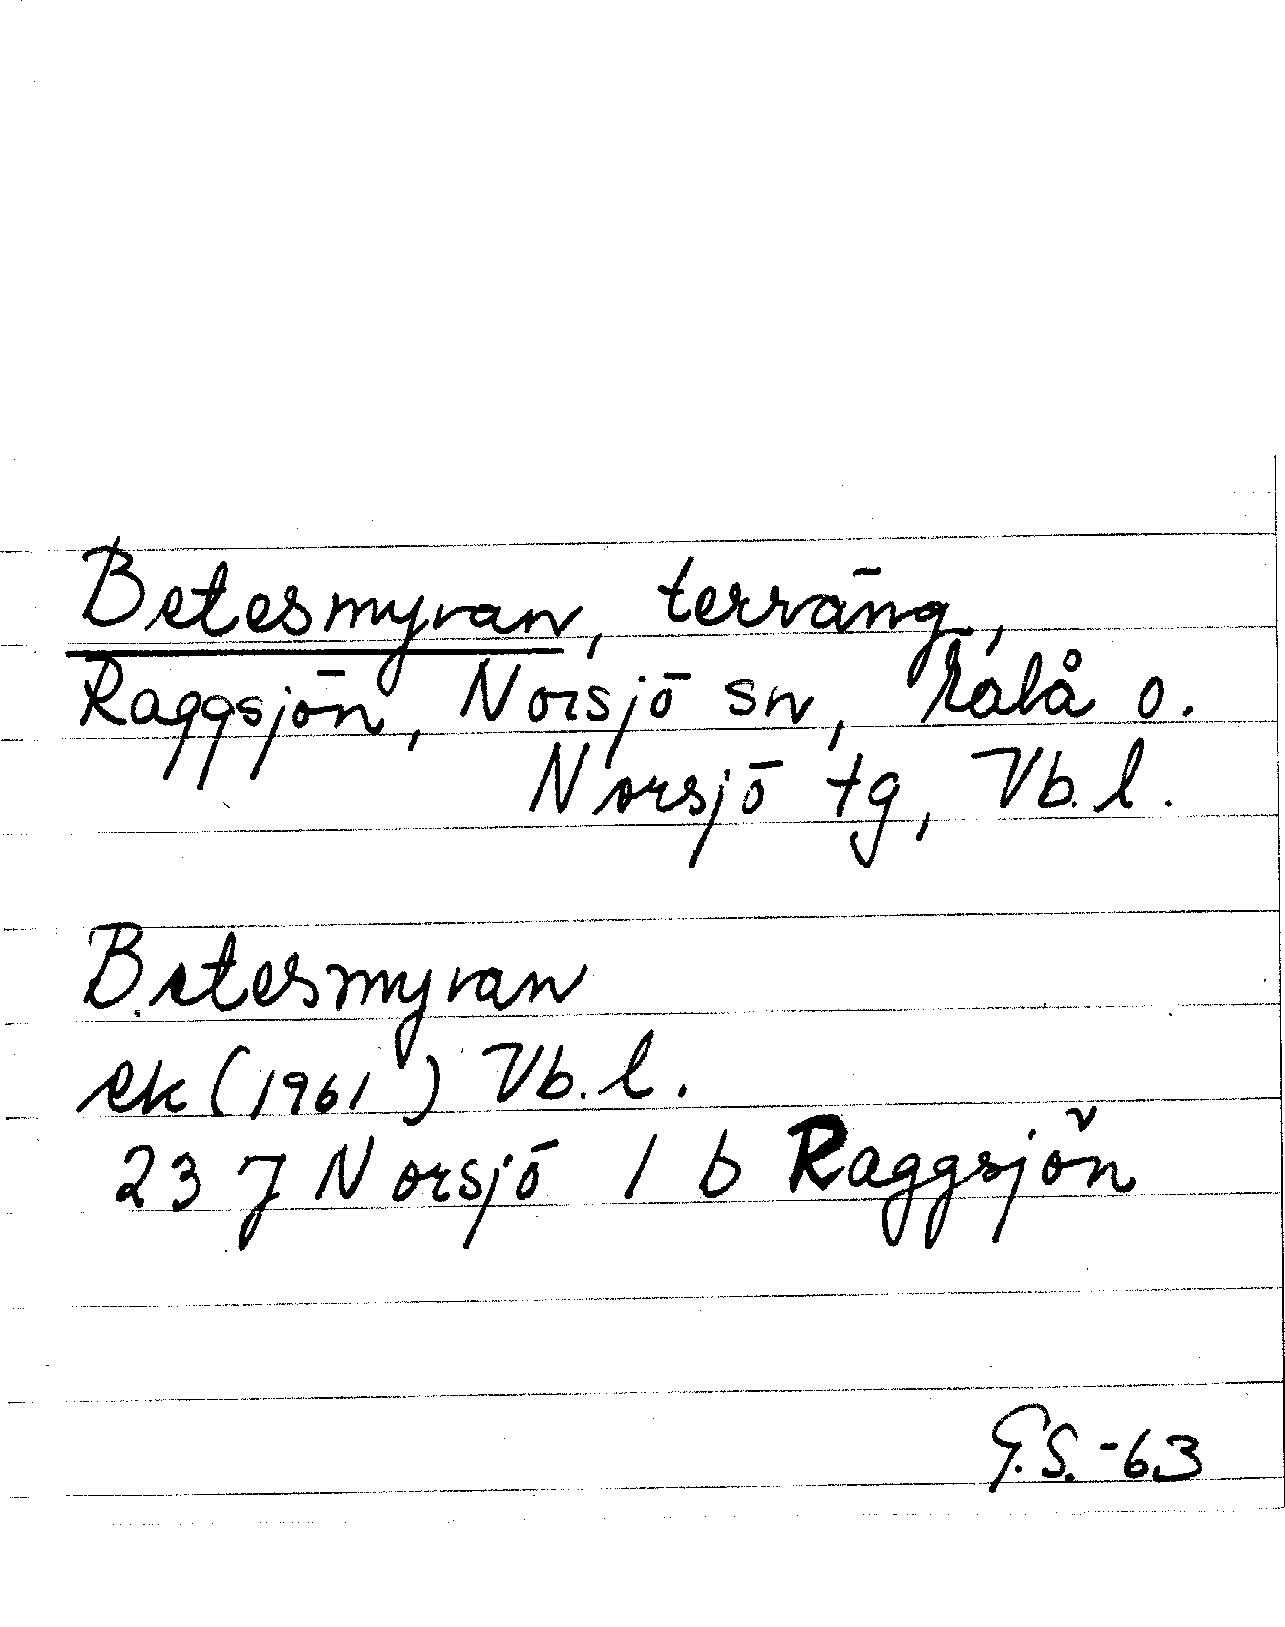 Betesmyran, terräng,
Raggsjön, Norsjö sn, Malå o.
Norsjö tg, Vb.l.
Betesmyran
ek (1961) Vb.l.
23 J Norsjö 1 b Raggsjön
G.S. -63